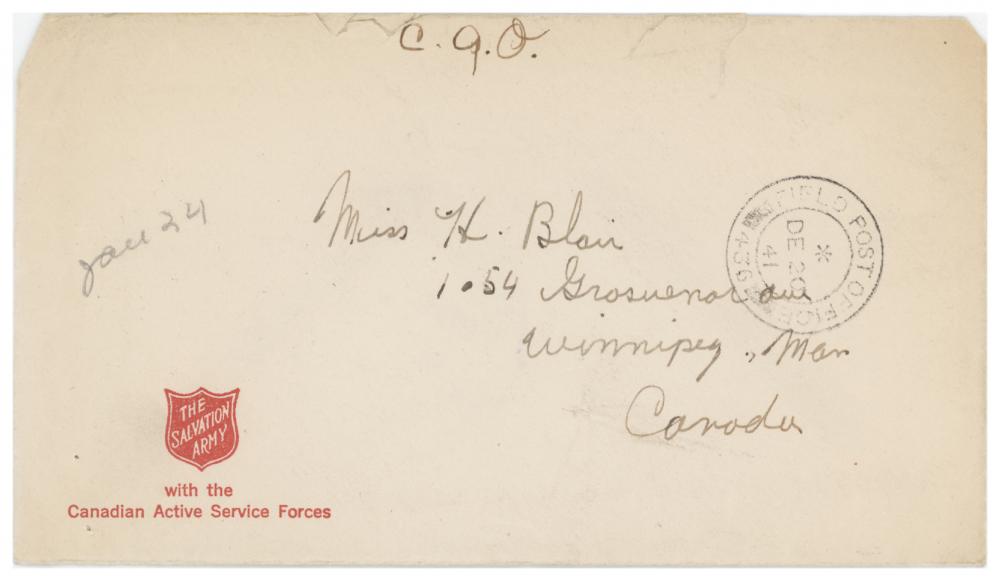 C.A.O.
Jan 24
Miss H. Blair
1054 Grosvenor ave
Winnipeg, Man
Canada
FIELD POST OFFICE
*
DE 20
41
THE
SALVATION
ARMY
with the
Canadian Active Service Forces